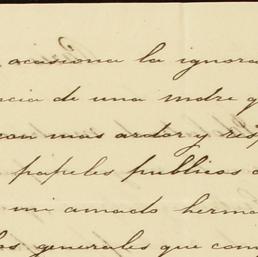 ocasiona la ignora
cia de una madre q
con mas ardor y res
papeles publicos
mi amado herma
los generales que com